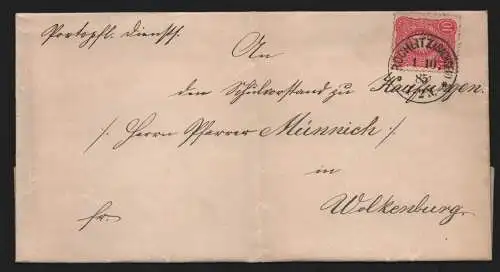 Portopfl. Dienstf.
10
ROCHLITZ
1 10.
85
An
den Schulvorstand zu Kaufungen.
/: Herrn Pfarrer Münnich :/
in
fr.
Wolkenburg.